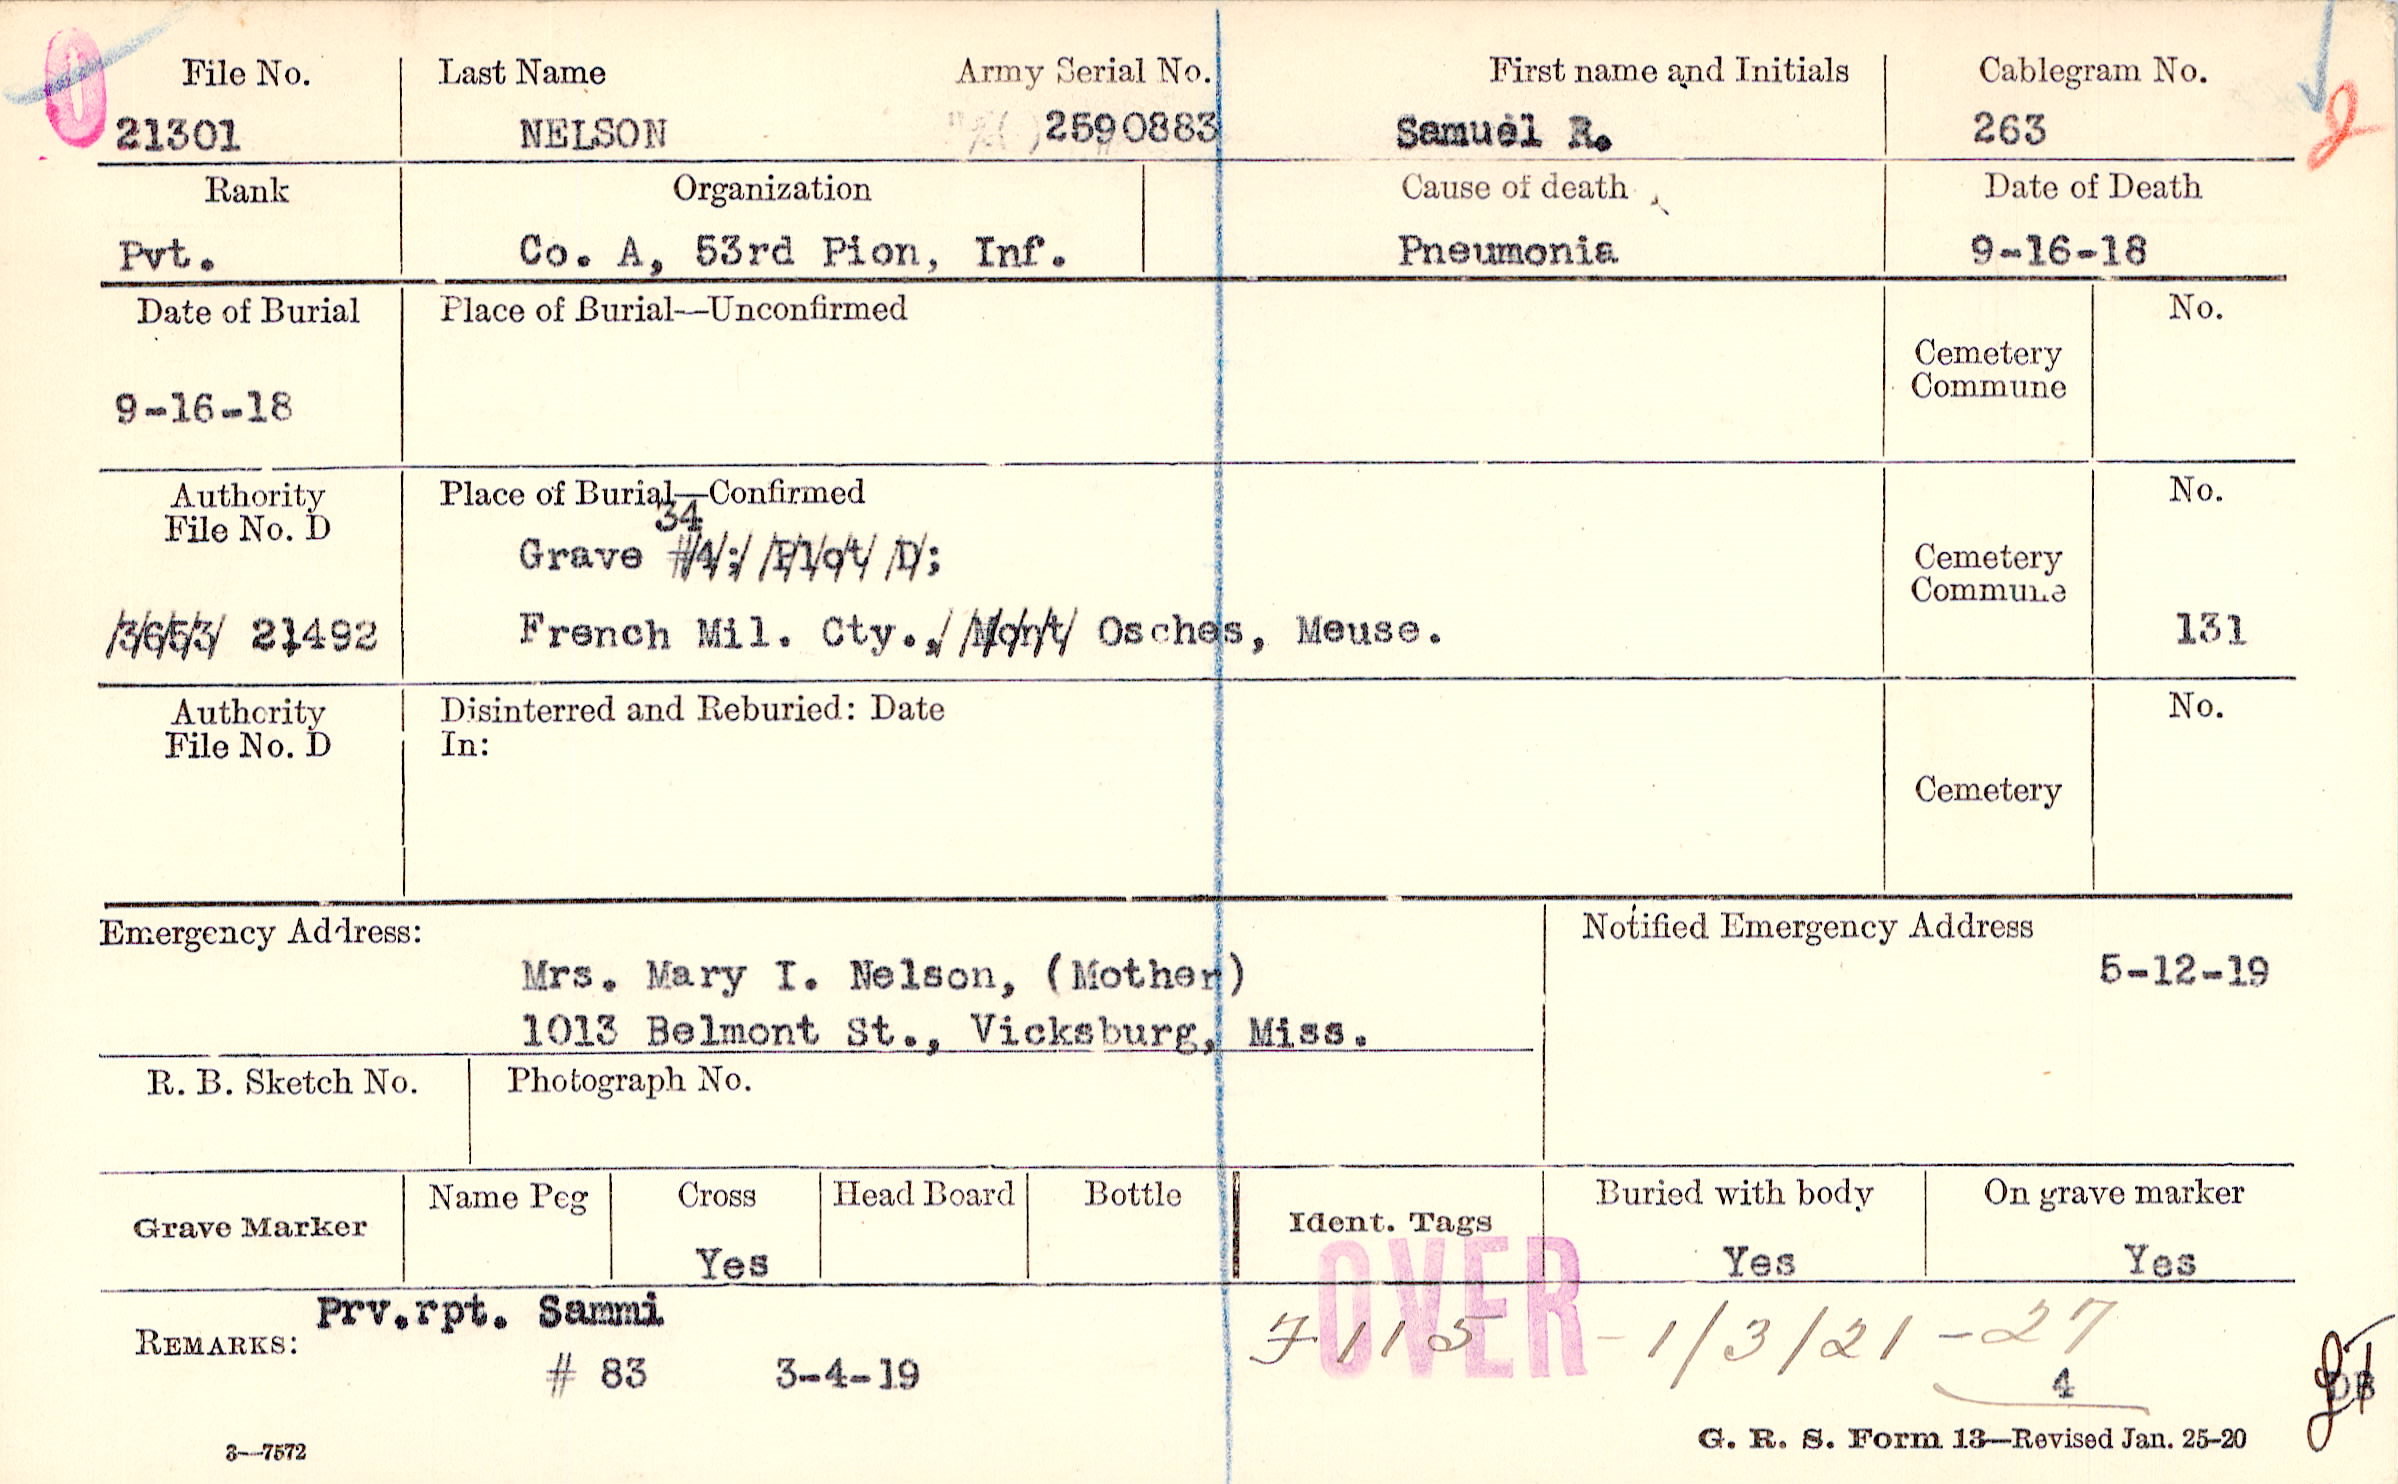 File No. Last Name Army Serial No. First name and Initials Cablegram No.
21301 NELSON 2590883 Samuel R. 263
Rank Organization Cause of death Date of Death
Pvt. Co. A, 53rd Pion, Inf. Pneumonia 9-16-18
Date of Burial Place of Burial—Unconfirmed No.
Cemetery
Commune
9-16-18
Authority Place of Burial—Confirmed No.
File No. D
34
Grave #4; Plot D;
Cemetery
Commune
3653 21492 French Mil. Cty., Mont Osches, Meuse. 131
Authority Disinterred and Reburied: Date No.
File No. D In:
Cemetery
Emergency Address: Notified Emergency Address
Mrs. Mary I. Nelson, (Mother) 5-12-19
1013 Belmont St., Vicksburg, Miss.
R. B. Sketch No. Photograph No.
Grave Marker Name Peg Cross Head Board Bottle Ident. Tags Buried with body On grave marker
Yes Yes Yes
OVER
Prv.rpt. Sammi
REMARKS: 7115 - 1/3/21 - 27
# 83 3-4-19 4
3—7572 G. R. S. Form 13—Revised Jan. 25-20